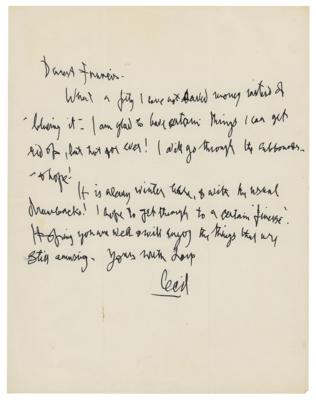 Dearest Francis -
What a pity I have not saved money instead of
I am glad to have certain things I can get
rid of, but not you ever! I will go through the
- & hope!
It is always winter here, & with the usual
drawbacks! I hope to get through to a certain finesse.
Hoping you are well & will enjoy the things that are
still amusing. Yours with love
Cecil